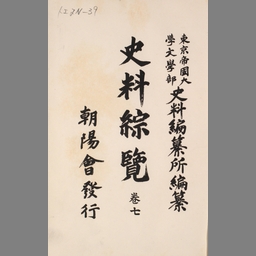 12JN-59
東京帝國大
學文學部
史料編纂所編纂
史料綜覽
卷七
朝陽會發行